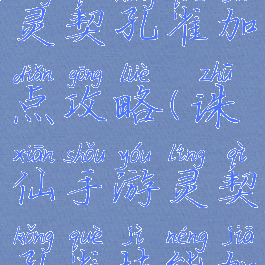 灵契孔雀加
diǎn gōng lüè zhū
点攻略(诛
xiān shǒu yóu líng qì
仙手游灵契
kǒng què jì néng jiā